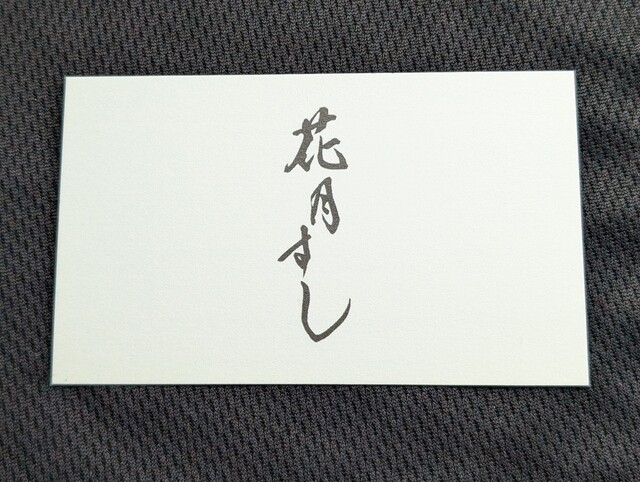 花月すし